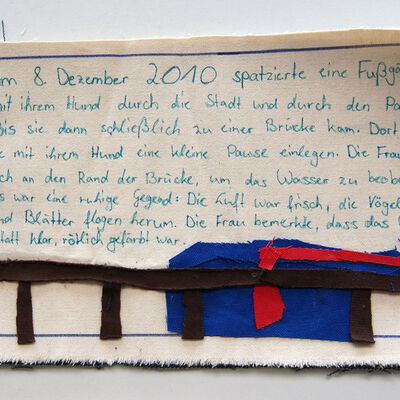 m 8. Dezember 2010 spatzierte eine Fußgä
mit ihrem Hund durch die Stadt und durch den Pa
bis sie dann schließlich zu einer Brücke kam. Dort
e mit ihrem Hund eine kleine Pause einlegen. Die Frau
ch an den Rand der Brücke, um das Wasser zu beob
s war eine ruhige Gegend: Die Luft war frisch, die Vögel
nd Blätter flogen herum. Die Frau bemerkte, dass das
tatt klar, rötlich gefärbt war.